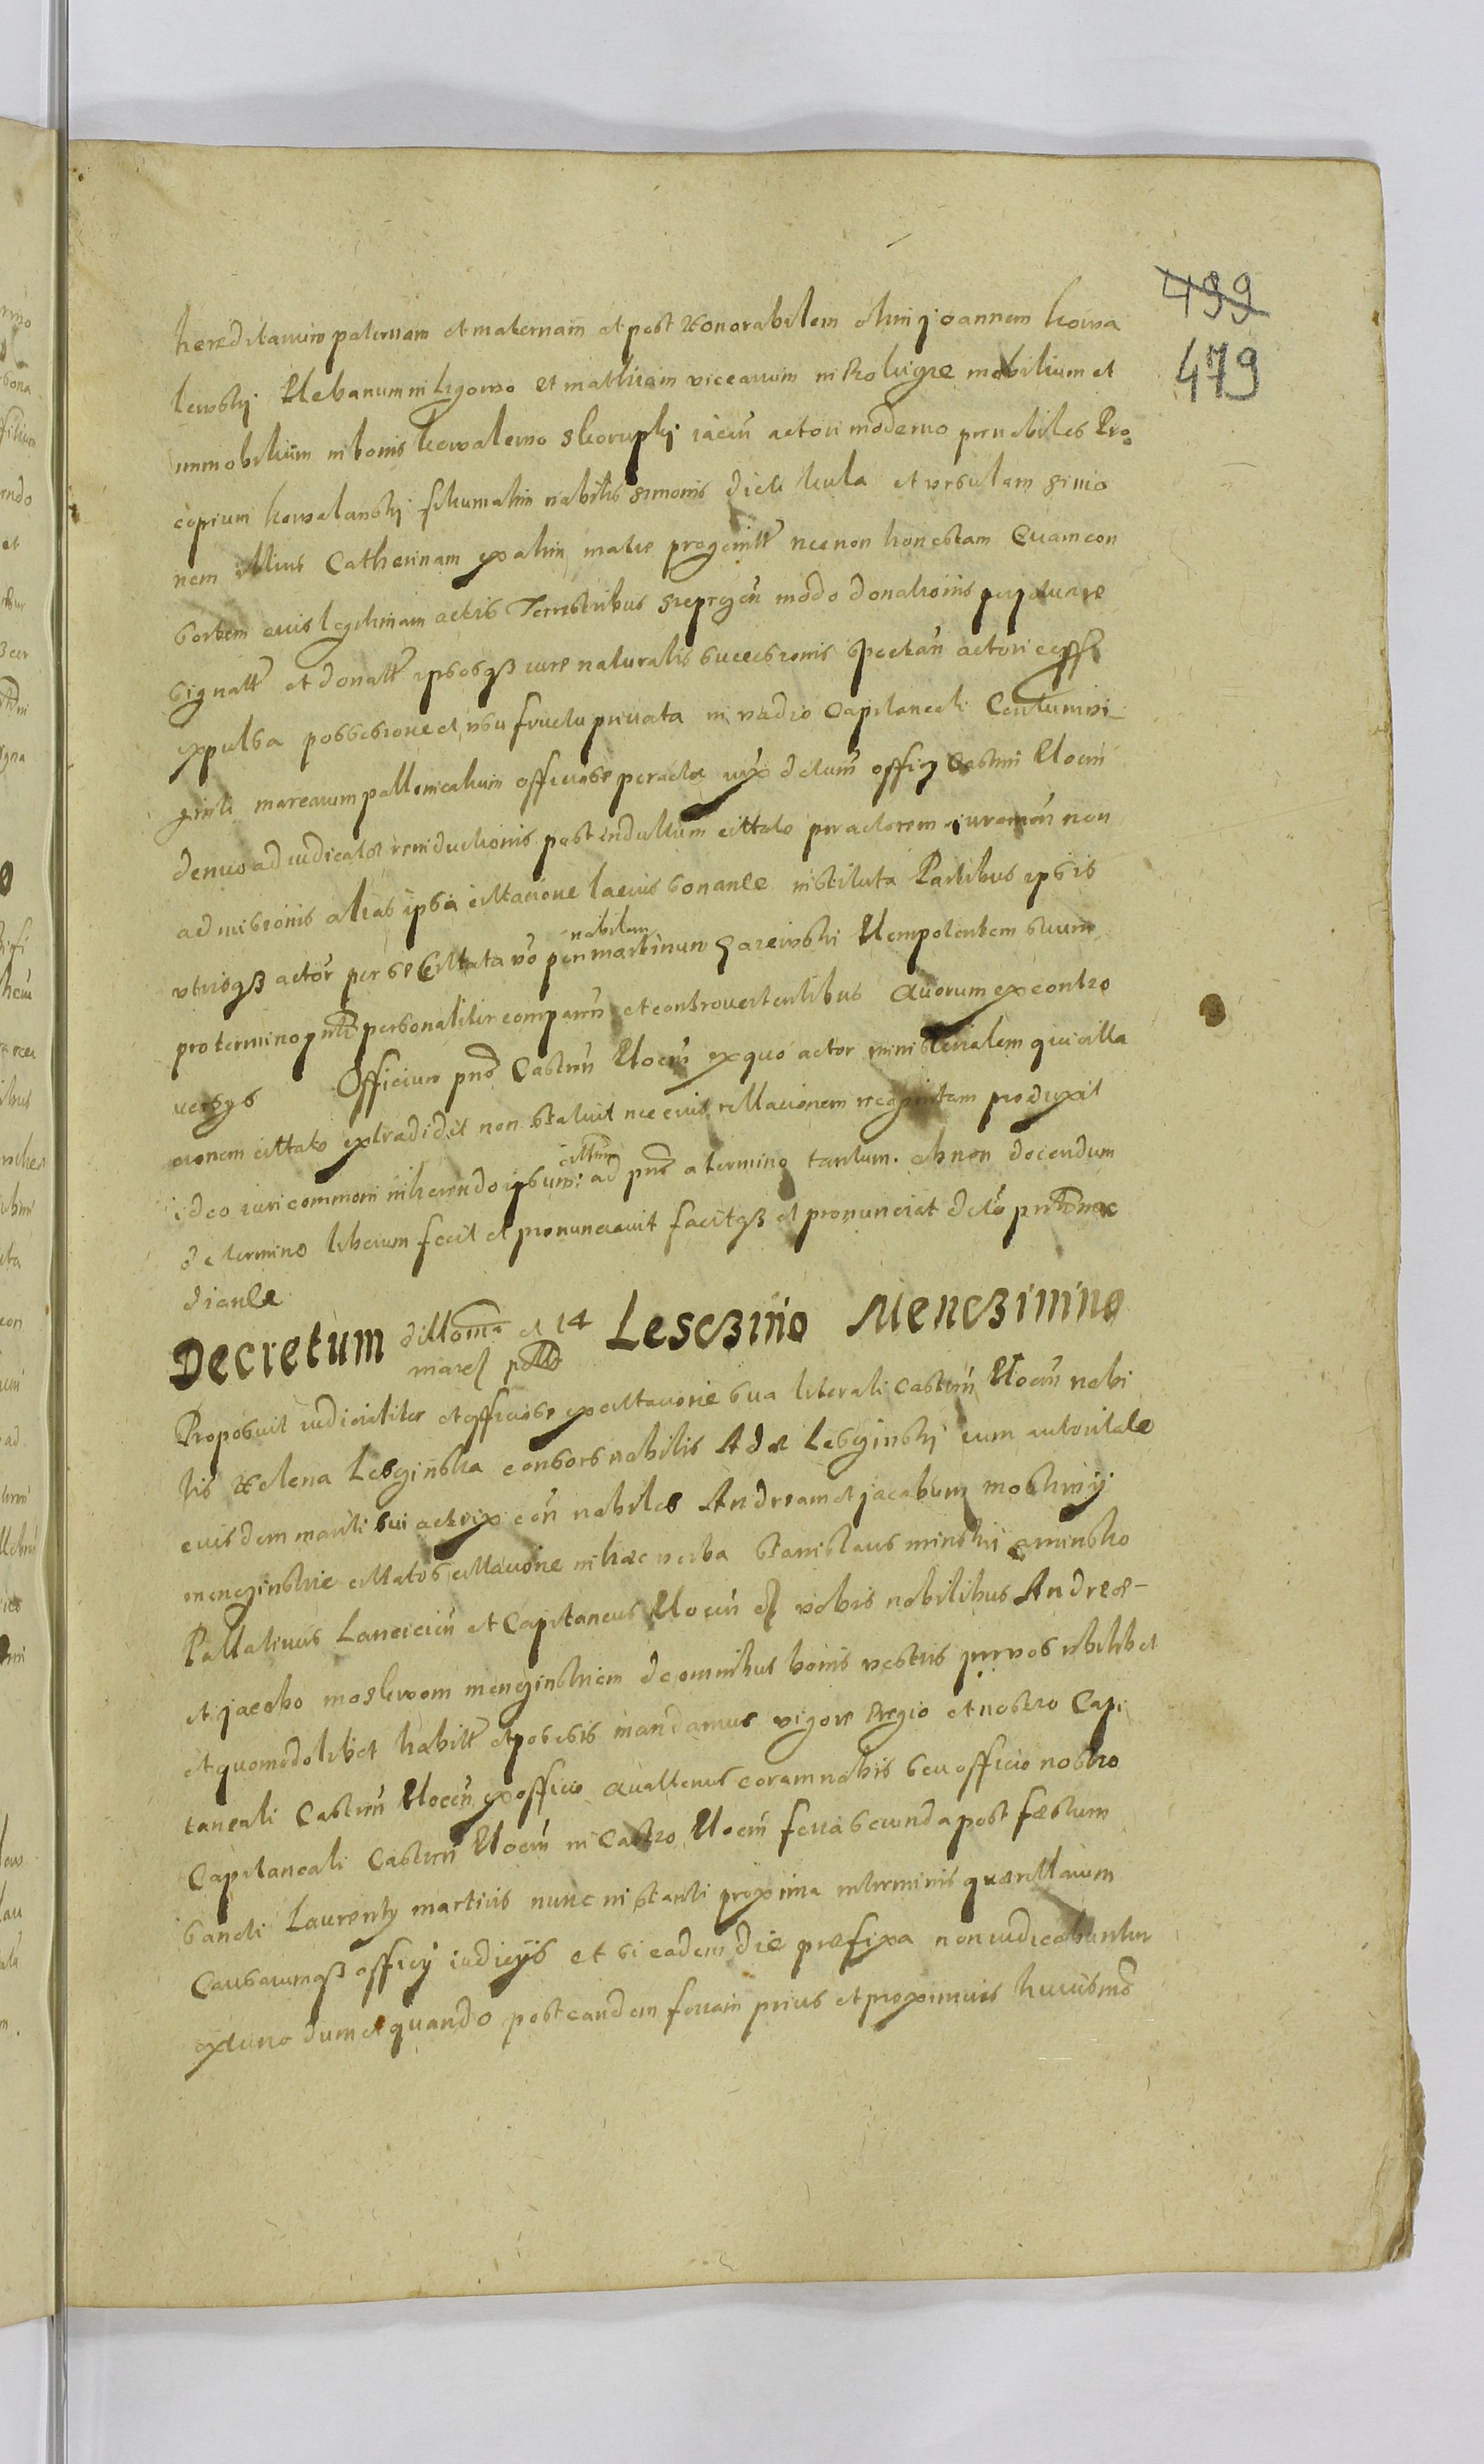 499
479
hereditariam paternam et maternam et post Honorabilem olim Joannem Kowa
lewskij Plebanum in Ligowo et mathiam vicearium in mobilium et
immobilium in bonis kowalewo skorupkij iacen̄ actori moderno per nobiles Pro
copium kowalewskij filium olim nobilis Simonis dicti kula et vrsulam
nem illius Catherinam ex olim matre progenitt necnon honestam Evam con
sortem eius legitimam actis Terrestribus modo donationis perpetuae
signatt et donatt ipsosqз iure naturalis successionis spectan̄ actori
expulsa possessione et vsu fructu privata in vadio Capitaneali Centum vi
ginti marcarum pollonicalium officiose peracta officij Castrin̄ Plocen̄
denuo adiudicatae reinductionis post indultum cittato per actorem iuramen̄ non
admissionis alias ipsa cittatione latius sonante instituta Partibus ipsis
vtrisqз actor per se Cittata vo per nobilem martinum Plenipotentem suum
pro termino pnti personaliter comparen̄ et controvertentibus Quorum ex contro
versys Officium pns Castren̄ Plocen̄ ex quo actor ministerialem qui illa
cionem cittato extradidit non statuit nec eius rellationem productit
ideo iuri communi inherendo ipsum cittum ad pns a termino tantum ob non docendum
de termino liberum fecit et pronunciavit facitqз et pronunciat decto
diante
Decretum et 14 Lesczino Menczinino
marc
Proposuit iudicialiter et officiose ex cittatione sua literali Castren̄ Plocen̄ nobi
lis Helena Lesginska consors nobilis Adae Lesginskij cum autoritate
eiusdem mariti sui actrix con̄ nobiles Andream et jacobum
menginskie cittatos cittatione in haec verba Stanislaus minski a minsko
Pallatinus Lancicien̄ et Capitaneus Plocen̄ vobis nobilibus Andreae
et jacobo menginskiem de omnibus bonis vestris per vos vbilibet
et quomodolibet habitt et possessis mandamus vigore Regio et nostro Capi
taneali Castren̄ Plocen̄ ex officio Quattenus coram nobis seu officio nostro
Capitaneali Castren̄ Plocen̄ in Castro Plocen̄ feria secunda post festum
Sancti Laurenty martiris nunc instanti proxima in terminis quaerellarum
Causarumqз officij iudicijs et si eadem die praefixa non iudicabuntur
extunc dum et quando post eandem feriam prius et proximius huiusmo